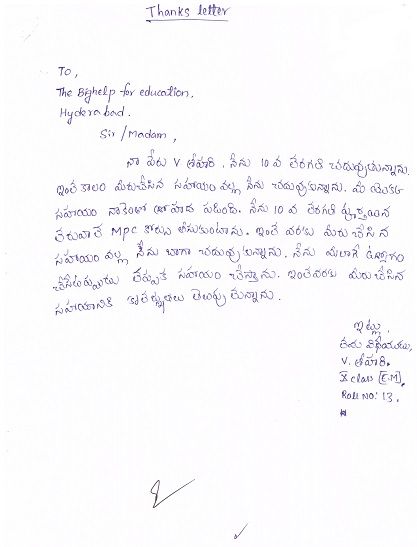 Thanks letter
To,
The Bighelp for education.
Hyderabad.
Sir / Madam,
నా పేరు V శ్రీహరి. నేను 10 వ తరగతి చదువుతున్నాను.
ఇంత కాలం మీరుచేసిన సహాయం వల్ల నేను చదువుకున్నాను. మీ యొక్క
సహాయం నాకెంతో ఉపయోగ పడింది. నేను 10 వ తరగతి పూర్తయిన
తరువాత MPC కోర్సు తీసుకుంటాను. ఇంత వరకు మీరు చేసిన
సహాయం వల్ల నేను బాగా చదువుకున్నాను. నేను మీలాగే ఉద్యోగం
చేసేటప్పుడు తప్పక సహాయం చేస్తాను. ఇంతవరకు మీరు చేసిన
సహాయానికి కృతజ్ఞతలు తెలుపుతున్నాను.
ఇట్లు
తమ విధేయుడు,
V. శ్రీహరి.
X class [E.M]
Roll NO: 13.